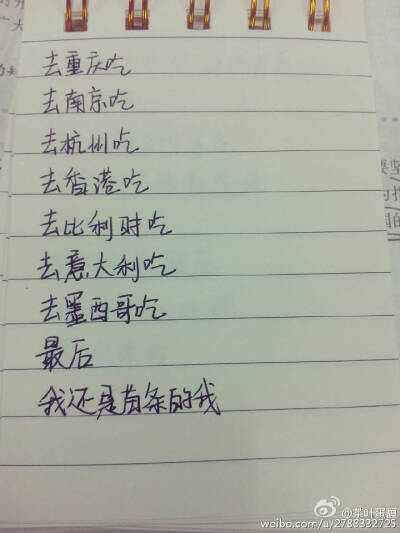 去重庆吃
去南京吃
去杭州吃
去香港吃
去比利时吃
去意大利吃
去墨西哥吃
最后
我还是苗条的我
@茶叶蛋馥
weibo.com/u/2788332725